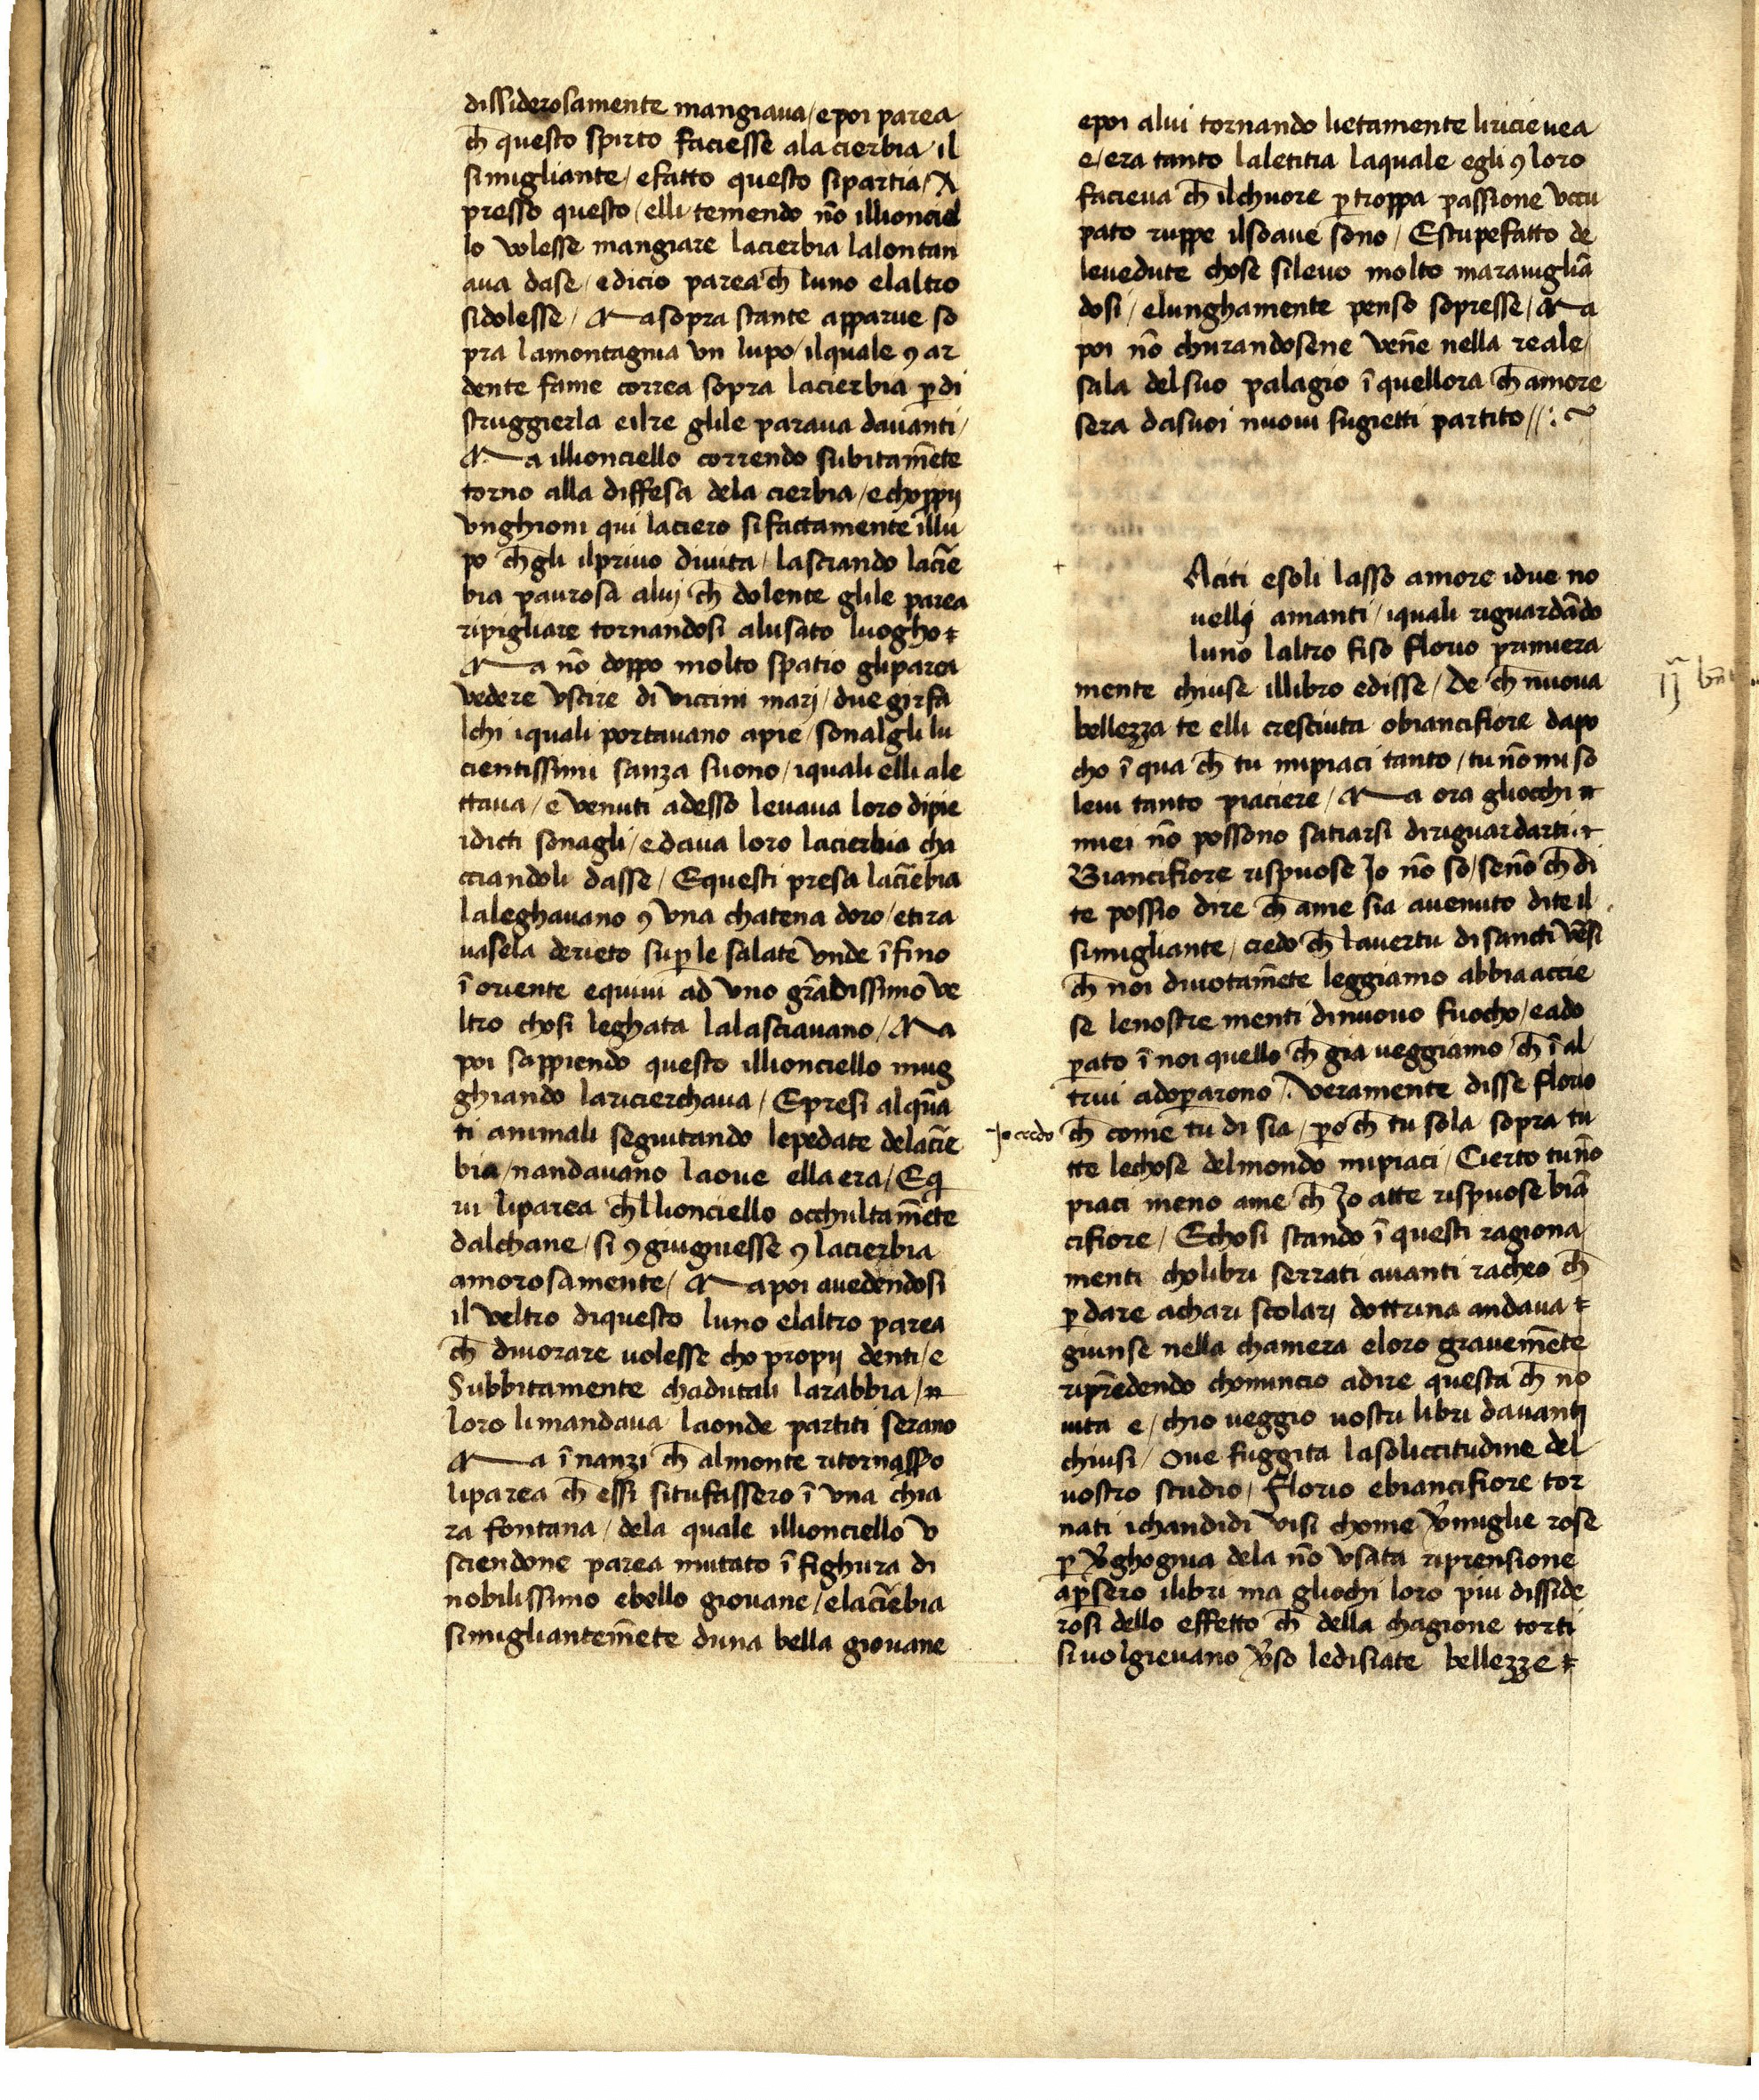 dissiderosamente mangiaua / e poi parea
ch̄ questo spirto faciesse ala cierbia il
simigliante / e fatto questo sipartia / A
presso questo / elli temendo nō illionciel
lo volesse mangiare lacierbia lalontan
aua dase / edicio parea ch̄ luno elaltro
sidolesse / Ma sopra stante apparue so
pra lamontagnia vn lupo / ilquale ꝯ ar
dente fame correa sopra lacierbia ꝑ di
struggierla eilre glile paraua dauanti /
Ma illionciello correndo subitamēte
torno alla diffesa dela cierbia / e choppij
vnghioni qui laciero sifattamente illu
po ch̄ gli ilpriuo diuita / lasciando laciē
bia paurosa aluj ch̄ dolente glile parea
ripigliare tornandosi alusato luogho
Ma nō doppo molto spatio gliparea
vedere vscire di viccini marj / due girfa
lchi iquali portauano apie / sonalgli lu
cientissimi sanza suono / iquali elli ale
ttaua / e venuti adesso leuaua loro dipie
idicti sonagli / e daua loro lacierbia cha
cciandoli dasse / Equesti presa laciēbia
laleghauano ꝯ vna chatena doro / etira
uasela derieto suꝑ le salate vnde ī fino
ī oriente equiui ad vno grādissimo ve
ltro chosi leghata lalasciauano / Ma
poi sappiendo questo illionciello mug
ghiando laricierchaua / Epresi alquā
ti animali seguitando lepedate delaciē
bia / nandauano laoue ella era / Eq
ui liparea ch̄ llionciello occhultamēte
dalchane / si ꝯgiugniesse ꝯ lacierbia
amorosamente / Ma poi auedendosi
il veltro diquesto luno elaltro parea
ch̄ diuorare uolesse cho propij denti / e
Subbitamente chadutali larabbia /
loro limandaua laonde partiti serano
Ma ī nanzi ch̄ almonte ritornasso
liparea ch̄ essi situfassero ī vna chia
ra fontana / dela quale illionciello v
sciendone parea mutato ī fighura di
nobilissimo ebello giouane / elaciēbia
simigliantemēte duna bella giouane
epoi alui tornando lietamente liricieuea
e / era tanto laletitia laquale egli ꝯ loro
facieua ch̄ ilchuore ꝑ troppa passione vccu
pato ruppe ilsoaue sono / Estupefatto de
leuedute chose sileuo molto marauigliā
dosi / elunghamente penso sopresse / Ma
poi nō churandosene vēne nella reale /
sala delsuo palagio ī quellora ch̄ amore
sera dasuoi nuoui sugietti partito // : ~
Aciti esoli lasso amore idue no
uellj amanti / iquali riguardādo
luno laltro fiso florio primiera
mente chiuse illibro edisse / De ch̄ nuoua
bellezza te elli cresciuta obiancifiore dapo
cho ī qua ch̄ tu mipiaci tanto / tu nō mi so
leui tanto piaciere / Ma ora gliocchi
miei nō possono satiarsi diriguardarti.
Biancifiore rispuose Jo nō so / senō ch̄ di
te possio dire ch̄ ame sia auenuto dite il
simigliante / credo ch̄ lauertu disancti vēsi
ch̄ noi diuotamēte leggiamo abbia accie
se lenostre menti dinuouo fuocho / eado
ꝑato ī noi quello ch̄ gia ueggiamo ch̄ ī al
trui adoꝑarono . Veramente disse florio
Jo credo ch̄ come tu di sia / ꝑo ch̄ tu sola sopra tu
tte lechose delmondo mipiaci / Cierto tu nō
piaci meno ame ch̄ Jo atte rispuose biā
cifiore / Echosi stando ī questi ragiona
menti cholibri serrati auanti racheo ch̄
ꝑ dare achari scolarj dottrina andaua
giunse nella chamera eloro grauemēte
riprēdendo chominicio adire questa ch̄ no
uita e / chio ueggio uostri libri dauantj
chiusi / Oue fuggita lasoliccitudine del
uostro studio / Florio ebiancifiore tor
nati ichandidi visi chome v̄miglie rose
ꝑ v̄ghognia dela nō vsata riprensione
aꝑsero ilibri ma gliochi loro piu disside
rosi dello effetto ch̄ della chagione torti
si uolgieuano v̄so ledisiate bellezze